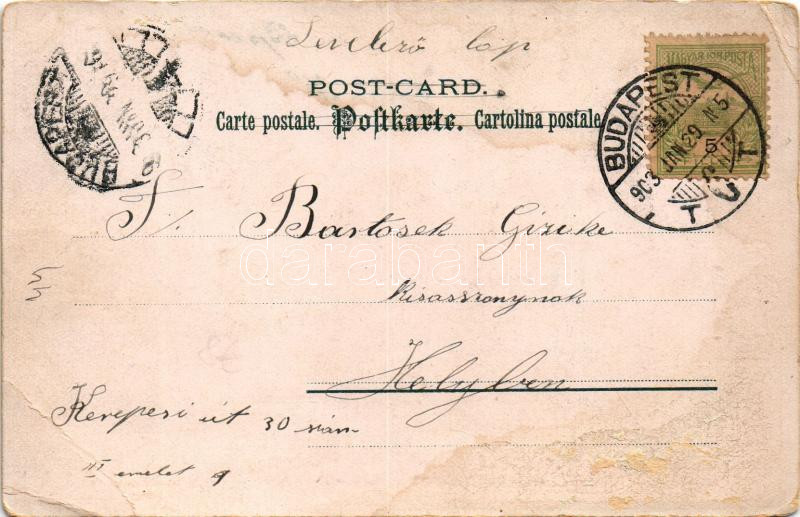 Levelező lap
POST-CARD.
Carte postale. Postkarte. Cartolina postale
MAGYAR KIR. POSTA
5
BUDAPEST
903 JAN 29 N5
BUDAPEST
T/. Bartosek Gizike
kisasszonynak
Helyben
Kerepesi út 30 szám
III emelet 9
darabanth